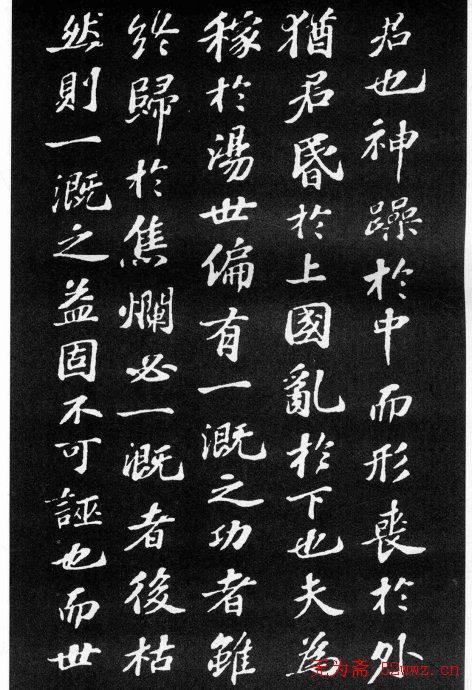 君也神躁於中而形喪於外
猶君昬於上國亂於下也夫為
稼於湯世偏有一溉之功者雖
終歸於焦爛必一溉者後枯
然則一溉之益固不可誣也而世
无为斋